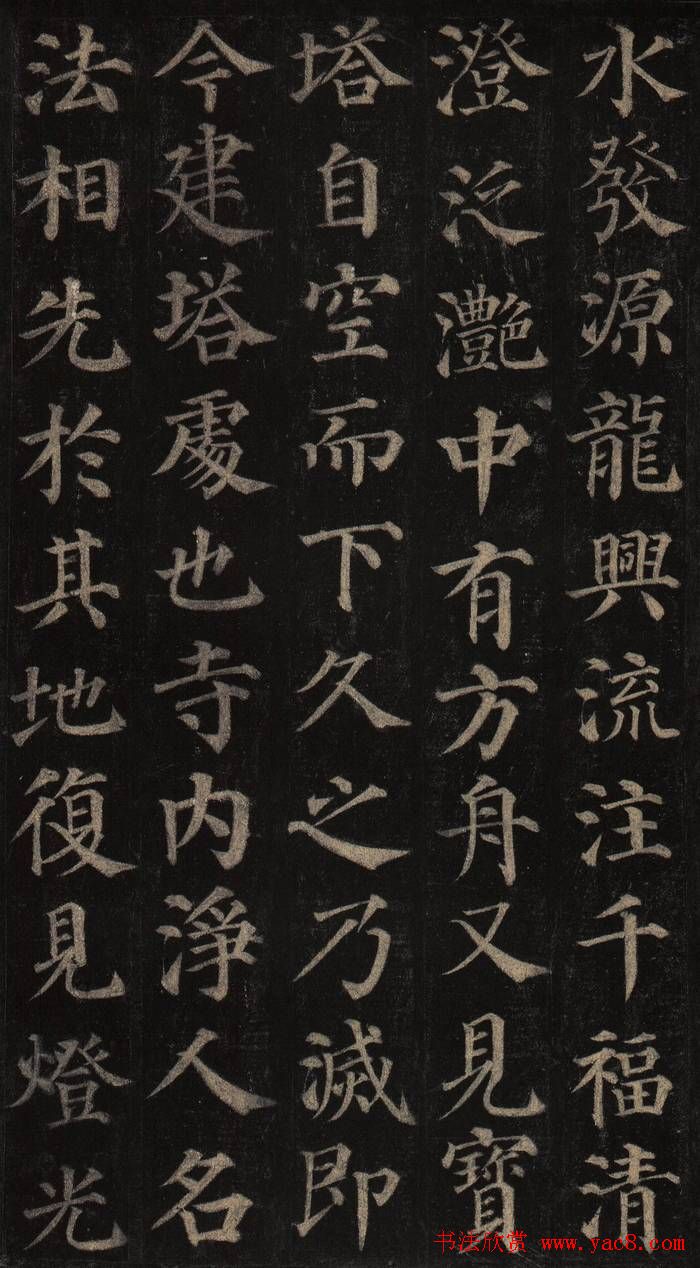 水發源龍興流注千福清
澄泛灧中有方舟又見寶
塔自空而下久之乃滅即
今建塔處也寺内淨人名
法相先於其地復見燈光
书法欣赏 www.yac8.com